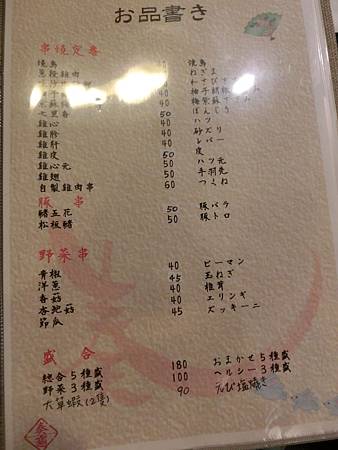 お品書き
串燒定番
燒鳥 焼鳥
蔥
40
40
40
七里香 50 ぼ
雞心 40 ハツ
雞胗 40 砂ズリ
雞肝 40 レバー
雞皮 50 皮
雞心元 50 ハツ元
雞翅 50 手羽先
自製雞肉串 60 つくね
豚串
豬五花 50 豚バラ
松板豬 50 豚トロ
野菜串
青椒 40 ピーマン
洋蔥 45 玉ねぎ
香菇 40 椎茸
杏鮑菇 40 エリンギ
節瓜 45 ズッキーニ
盛合
總合5種盛 180 おまかせ5種盛
野菜3種盛 100 ヘルシー3種盛
大草蝦(2隻) 90 えび塩焼き